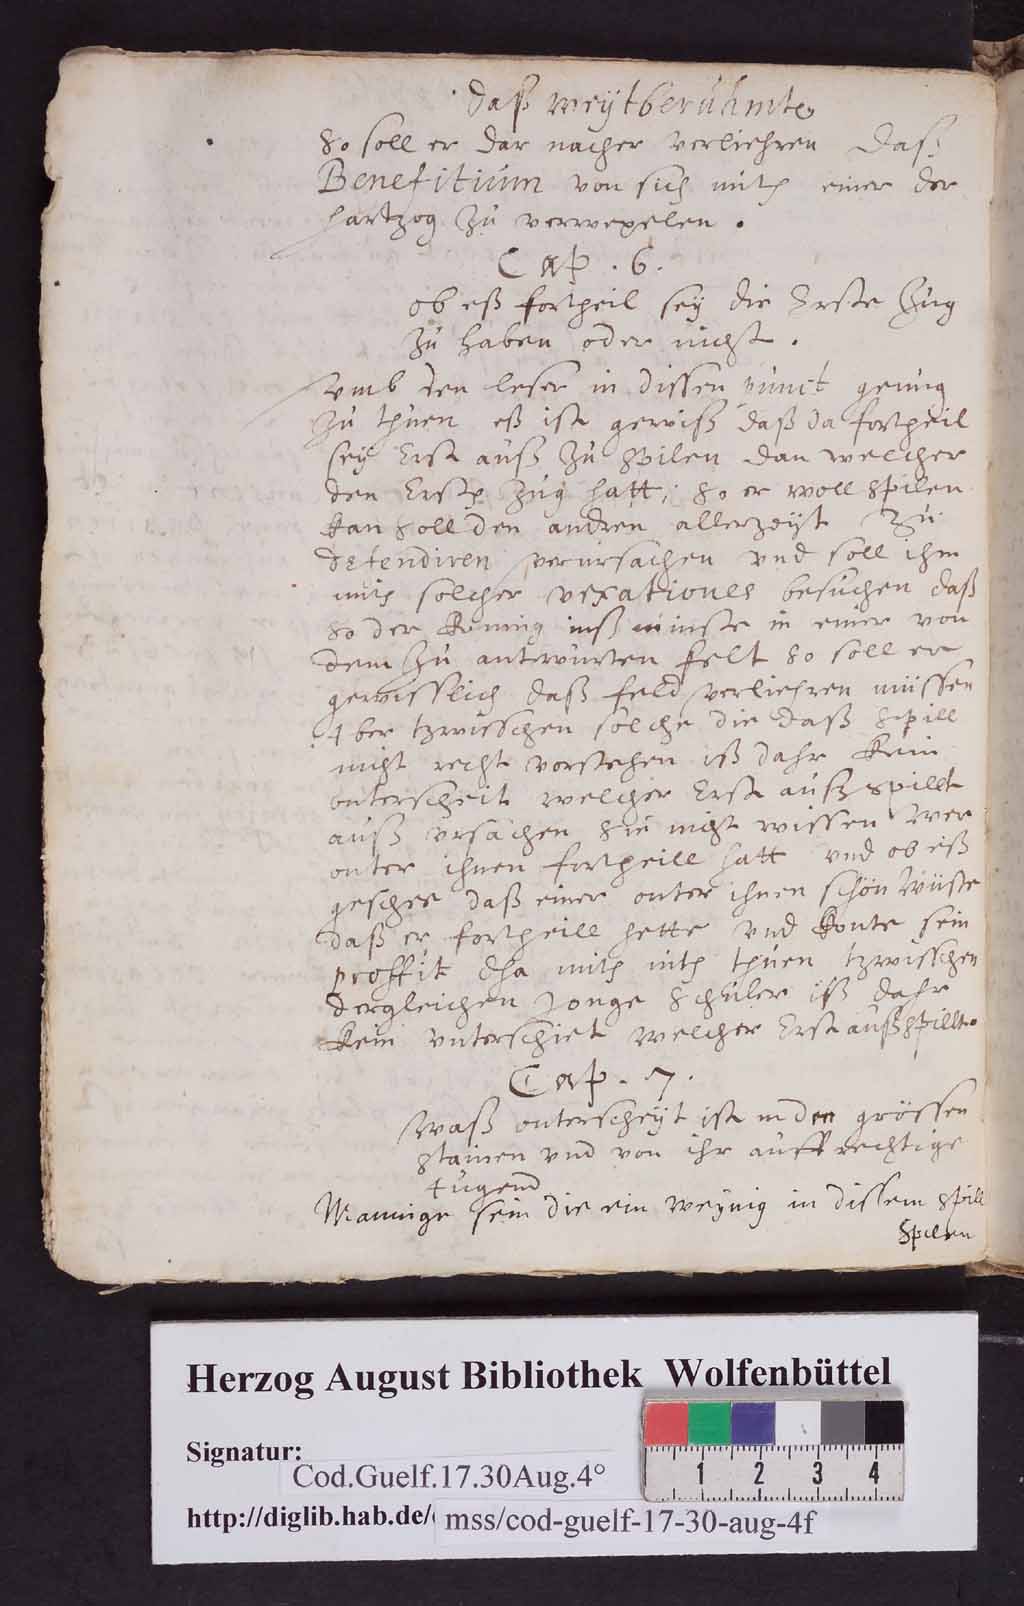 Daß weÿtberühmte
so soll er dar nacher verliehren Daß
Benefitium von sich mitt einer der
hartzog zu verwexelen .
Cap . 6.
ob eß fortheil seÿ die Erste Zug
zu haben oder nicht .
Vmb den leser in dissen punct genug
zu thuen eß ist gewiß daß da fortheil
seÿ Erst auß zu spilen dan welcher
den Erste zug hatt, so er woll spilen
kan soll den andren allerzeÿt zu
defendiren verursachen vnd soll ihm
mit solcher vexationes besuchen daß
so der Konnig inß minste in einer von
dem zu antwurten felt so soll er
gewisslich daß feld verliehren müssen
Aber tzwischen solche die daß spill
nicht recht vorstehen iß dahr kein
onterscheit welcher Erst auß spillt
auß vrsachen sie nicht wissen wer
onter ihnen fortheill hatt vnd ob eß
geschee daß einer onter ihnen schön wüste
daß er fortheill hette vnd konte sein
proffit dha mitt thuen tzwisschen
dergleichen Jonge schuler iß dahr
kein vnterschiet welcher Erst außspillt.
Cap . 7.
Waß onterscheÿt ist in den grössen
stainen vnd von ihr auffrechtige
tugend
Mannige sein die ein weÿnig in dissem spill
Spilen
Herzog August Bibliothek Wolfenbüttel
Signatur:
Cod.Guelf.17.30Aug.4°
http://diglib.hab.de/ mss/cod-guelf-17-30-aug-4f
1 2 3 4